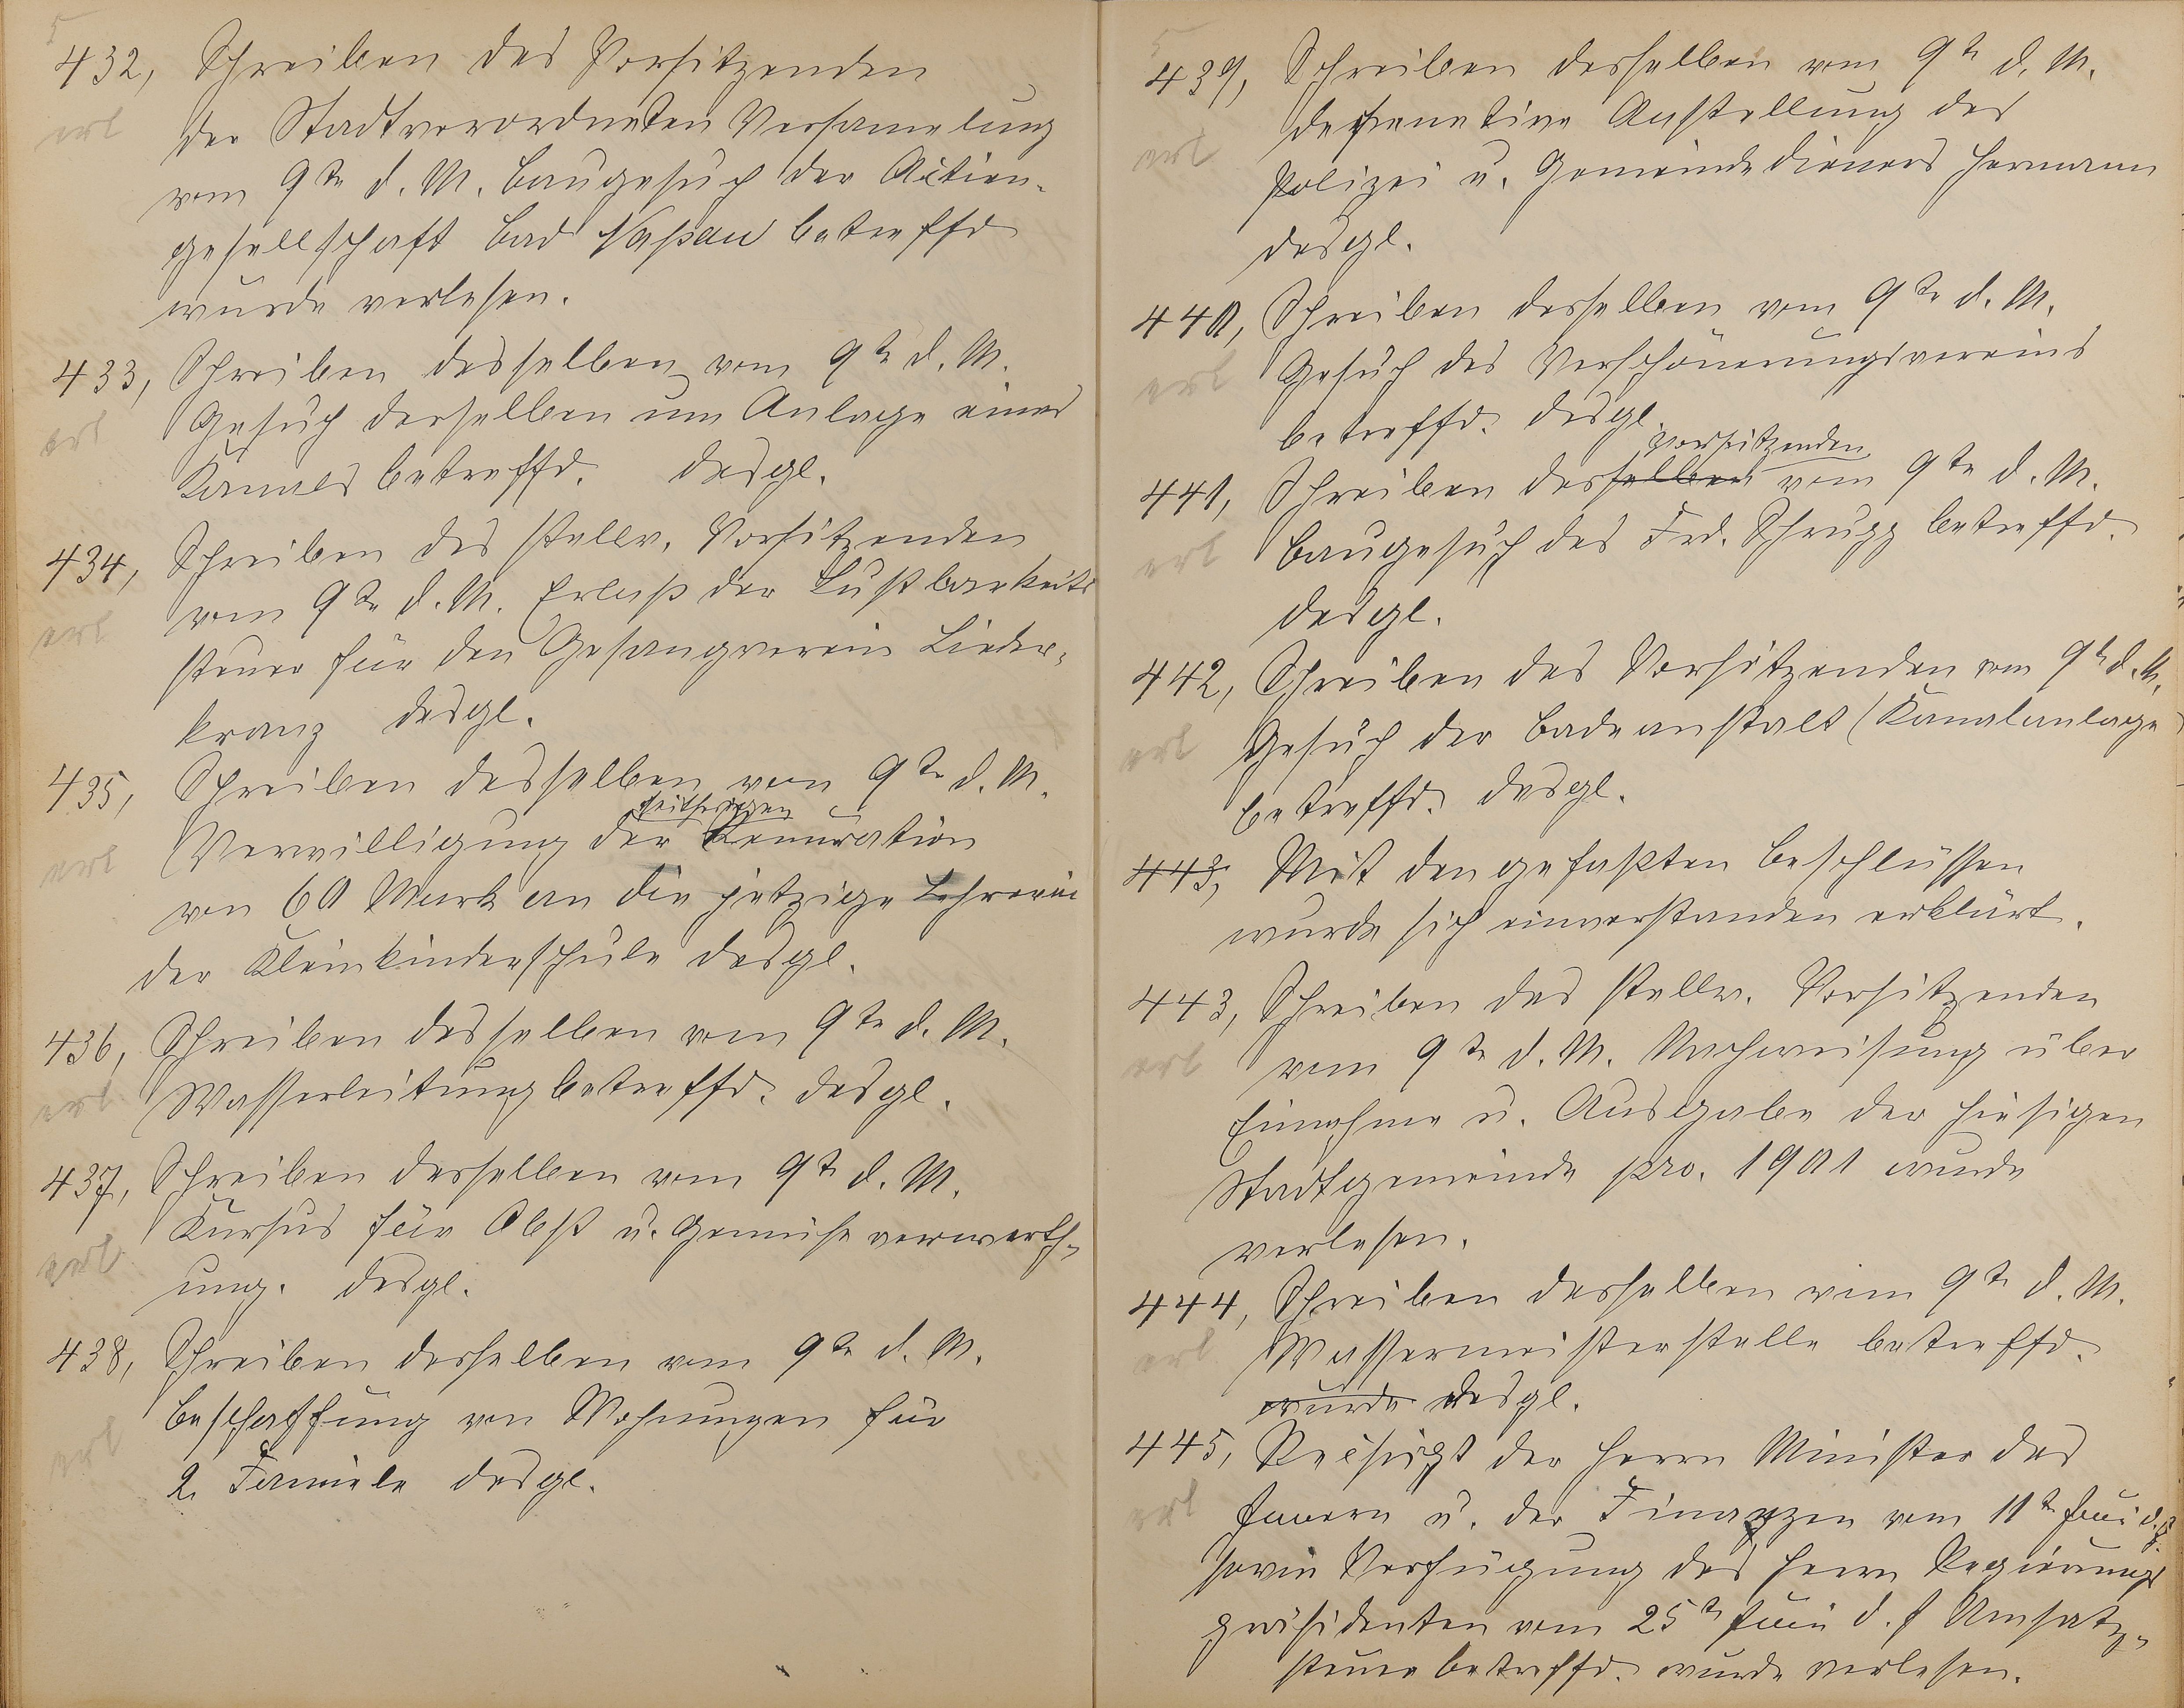 432, Schreiben des Vorsitzenden
erl der Stadtverordneten Versamelung
vom 9te d. M. Baugesuch der Actien-
gesellschaft Bad Naßau betreffd
wurde verlesen.
433, Schreiben desselben vom 9te d. M.
erl Gesuch derselben um Anlage eines
Kanals betreffd. desgl.
434, Schreiben des stellv. Vorsitzenden
erl vom 9te d. M. Erlaß der Lustbarkeits
steuer für den Gesangverein Lieder-
kranz desgl.
435, Schreiben desselben vom 9te d. M.
seitherigen
erl Verwilligung der Remuration
von 60 Mark an die jetzige Lehrerin
der Kleinkinderschule desgl.
436, Schreiben desselben vom 9te d. M.
erl Wasserleitung betreffd. desgl.
437, Schreiben desselben vom 9te d. M.
erl Kursus für Obst u. Gemüse verwerth-
ung. desgl.
438, Schreiben desselben vom 9te d. M.
erl Beschaffung von Wohnungen für
2 Famiele desgl.
439, Schreiben desselben vom 9te d. M.
erl defenetive Anstellung des
Polizei u. Gemeindedieners Hermann
desgl.
440, Schreiben desselben vom 9te d. M.
erl Gesuch des Verschönerungsvereins
betreffd. desgl.
vorsitzenden
441, Schreiben desselben vom 9te d. M.
erl Baugesuch des Frd. Schrupp betreffd.
desgl.
442, Schreiben des Vorsitzenden vom 9te d. M.
erl Gesuch der Badeanstalt (Kanalanlage
betreffd. desgl.
443, Mit den gefaßten Beschlüssen
wurde sich einverstanden erklärt.
443, Schreiben des stellv. Vorsitzenden
erl vom 9te d. M. Nachweisung über
Einnahme u. Ausgabe der hiesigen
Stadtgemeinde pro. 1901 wurde
verlesen.
444, Schreiben desselben vom 9te d. M.
erl Wassermeisterstelle betreffd.
wurde desgl.
445, der Herrn Minister des
erl Innern u. der Finanzen vom 11te Juni d. J.
sowie Verfügung des Herrn Regierungs
präsidenten vom 25te Juni d. J Umsatz-
steuer betreffd. wurde verlesen.